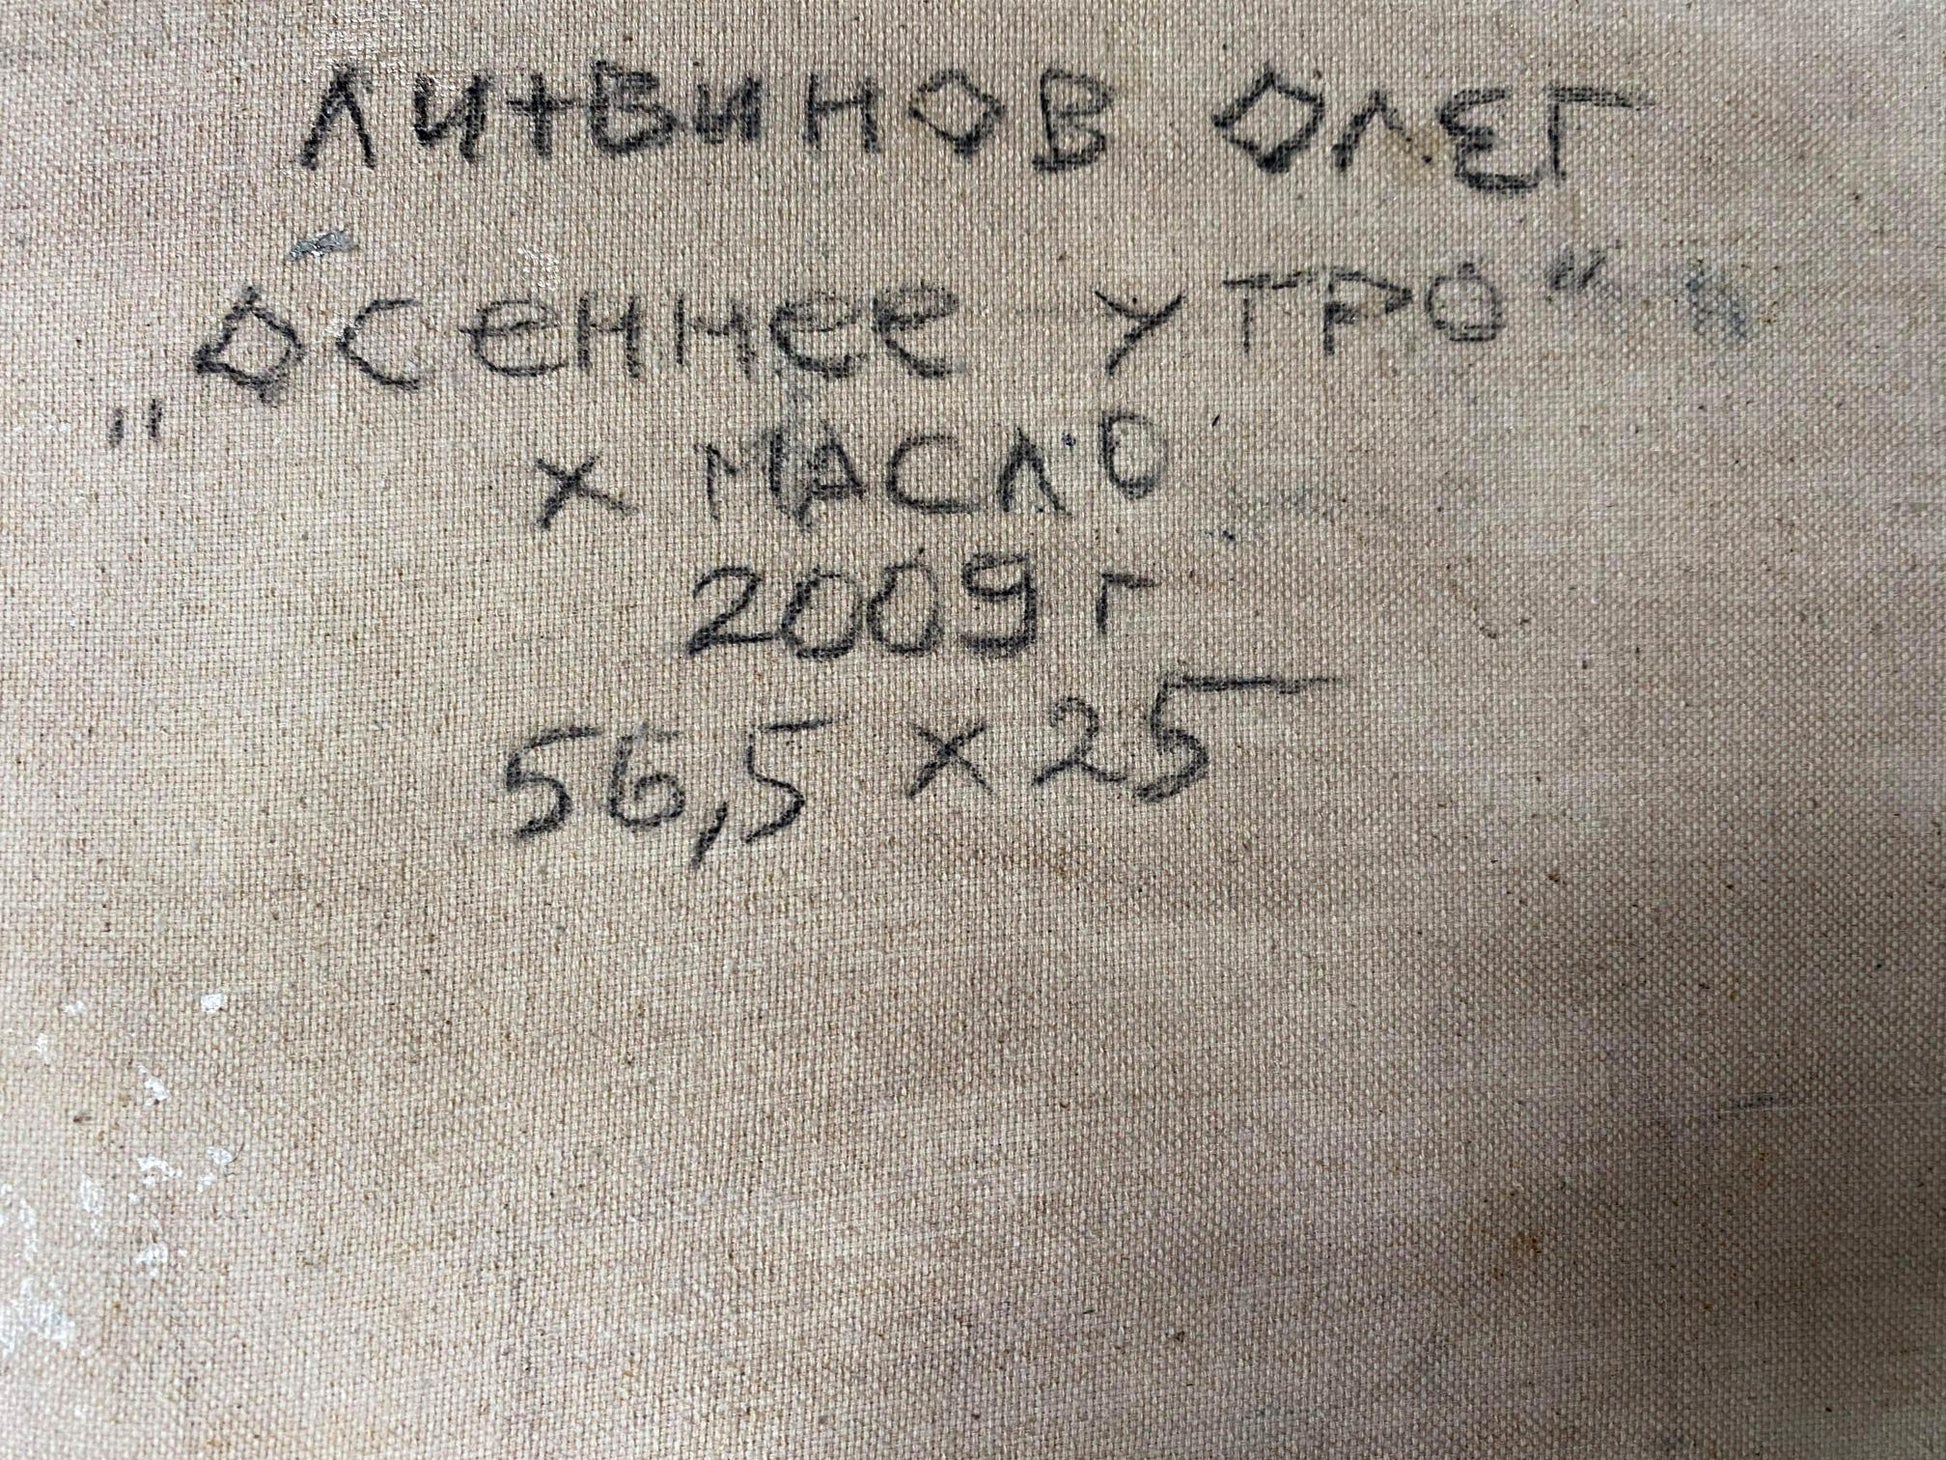 ЛИТВИНОВ ОЛЕГ
„ОСЕННЕЕ УТРО“
х МАСЛО
2009 г
56,5 х 25